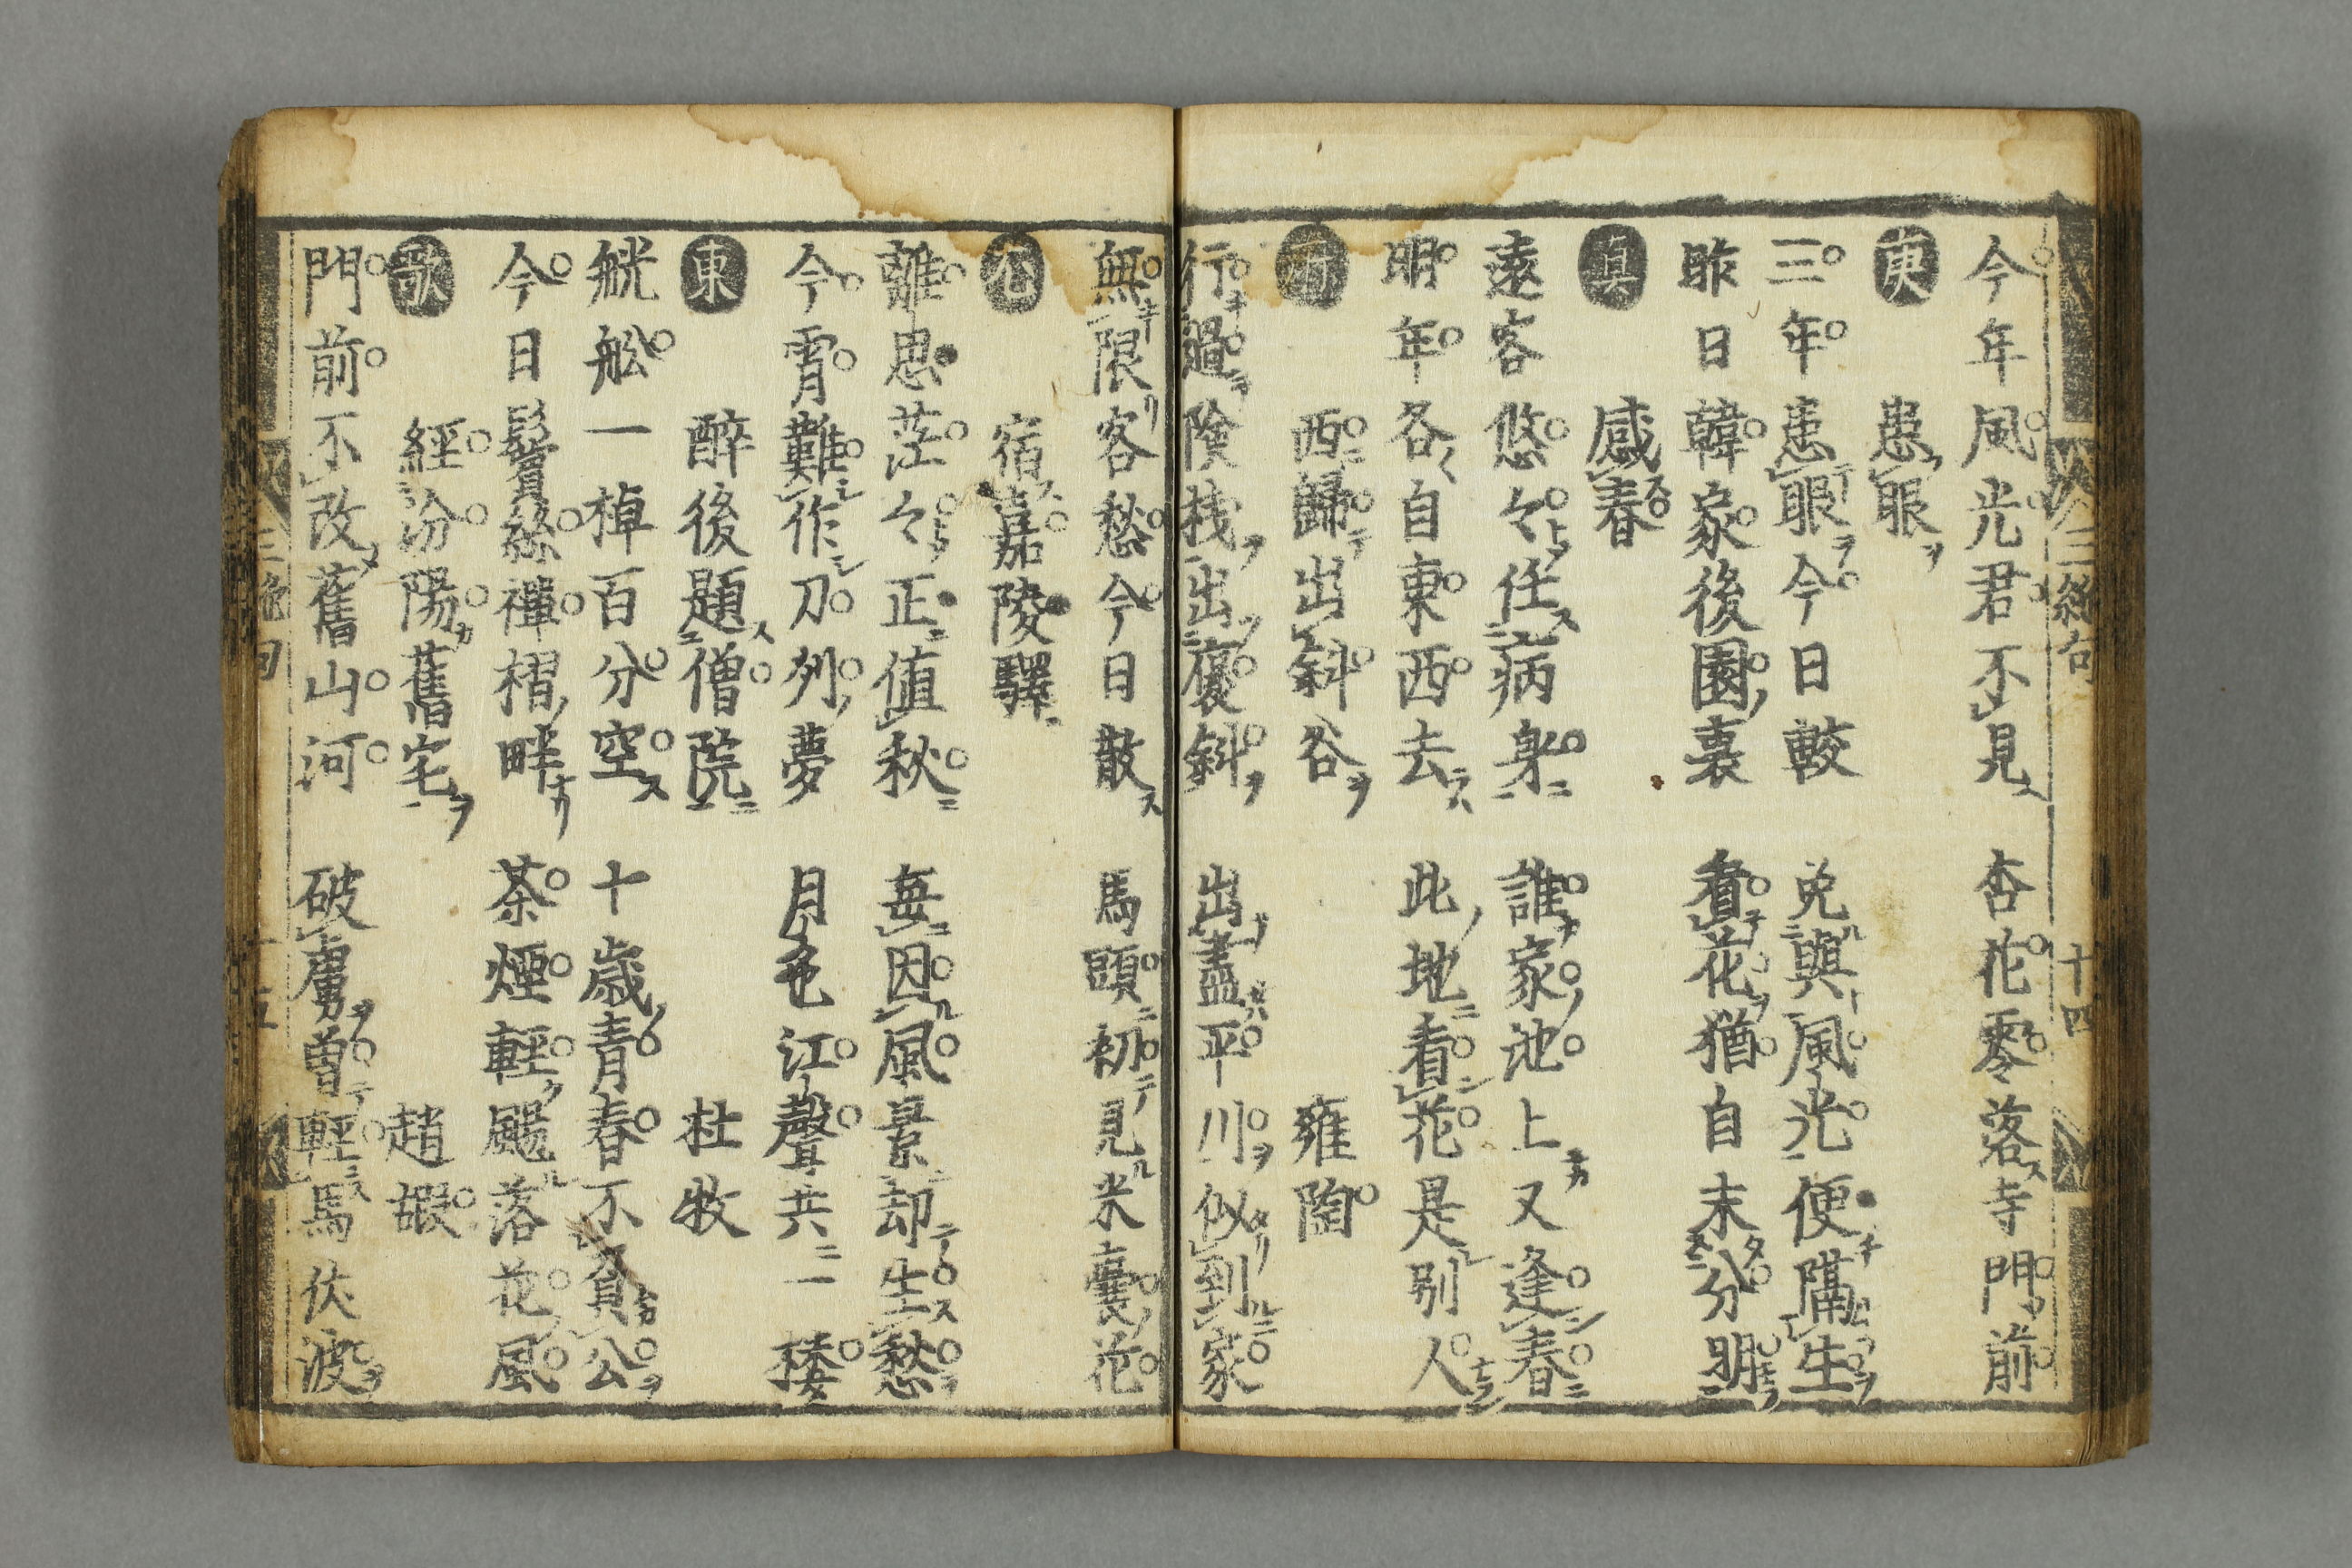 三絶句 十四
今年風光君不見 杏花零落寺門前
庚 患眼
三年患眼今日較 免與風光便隔生
昨日韓家後園裏 看花猶自末分明
真 感春
遠客悠々任病身 誰家池上又逢春
明年各自東西去 此地看花是別人
西歸出斜谷 雍陶
行過險棧出褒斜 出盡平川似到家
無限客愁今日散 馬頭初見米囊花
宿嘉陵驛
離思茫々正値秋 毎因風景却生愁
今宵難作刀州夢 月色江聲共一樓
東 醉後題僧院 杜牧
觥舩一棹百分空 十歳青春不負公
今日鬢絲禪榻畔 茶煙輕颺落花風
歌 經汾陽舊宅 趙嘏
門前不改舊山河 破虜曽輕馬伏波
三絶句 十五